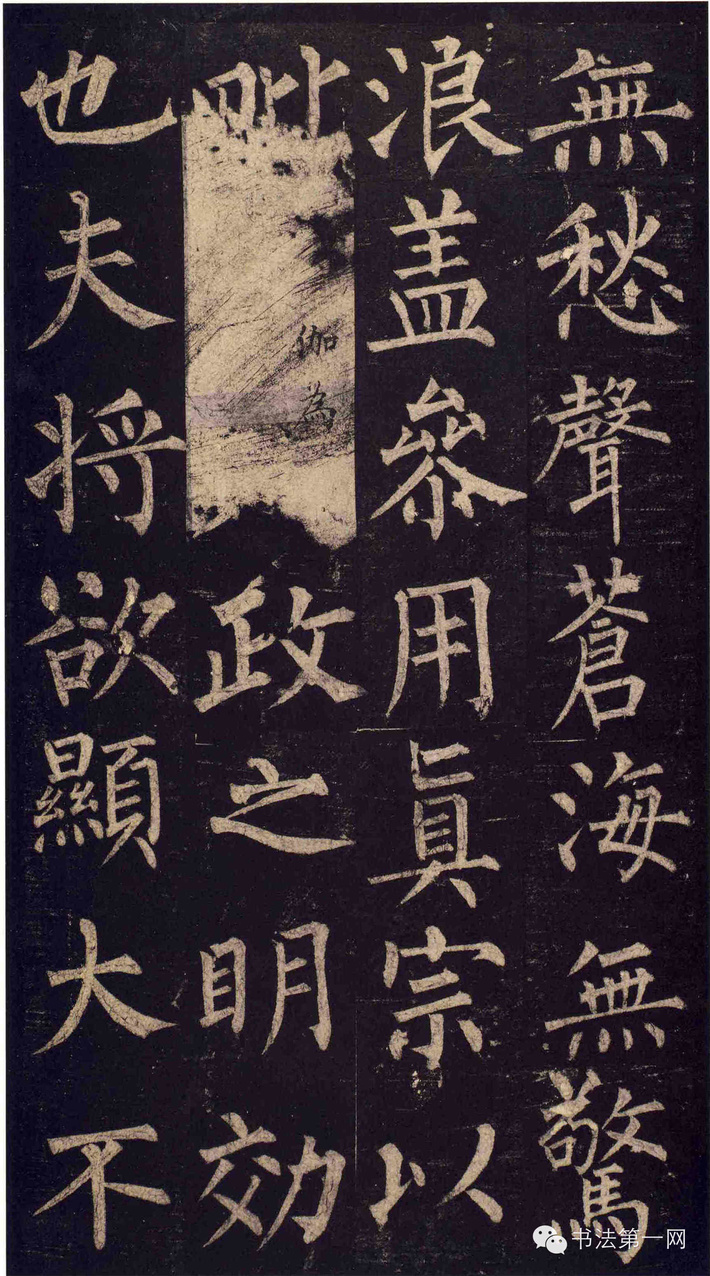 無愁聲蒼海無驚
浪盖參用眞宗以
政之明効
伽為
也夫将欲顯大不
书法第一网